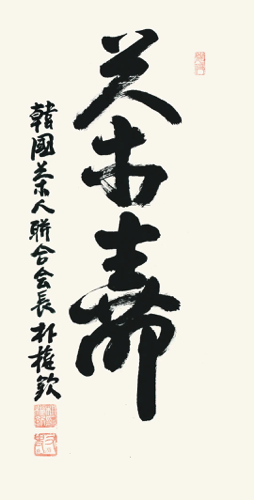 茶壽
韓國茶人聯合会長 朴權欽